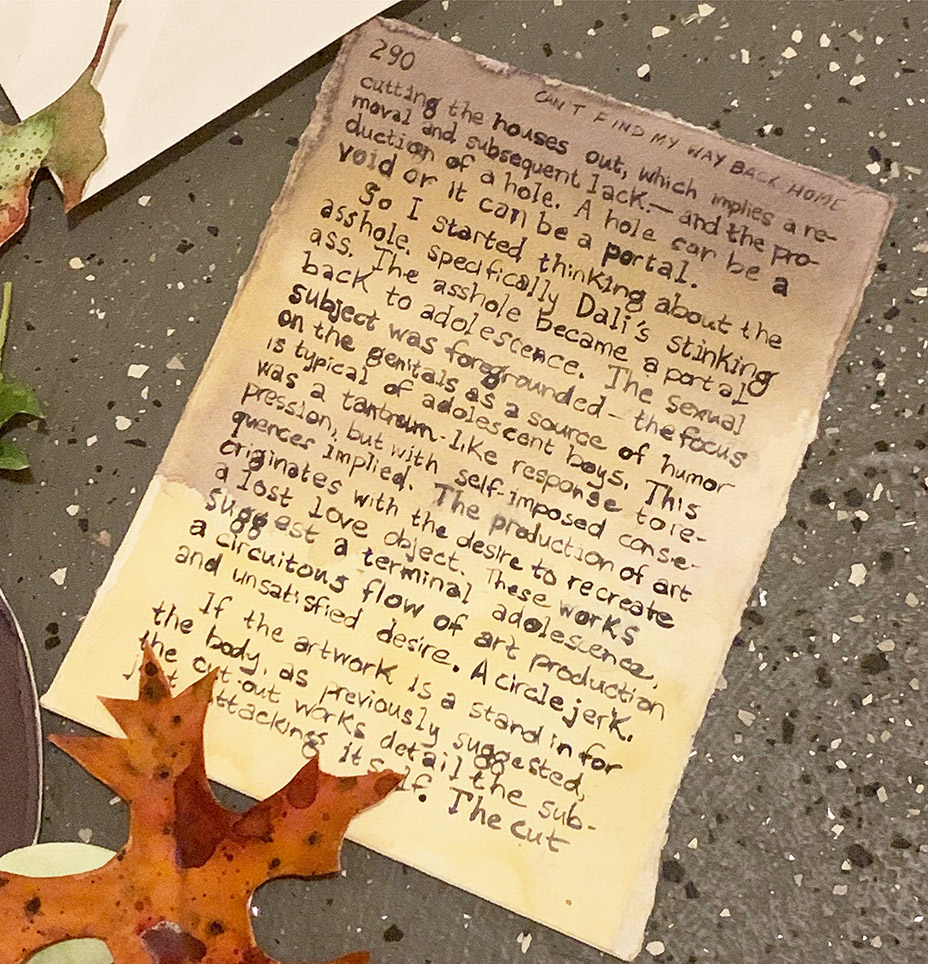 290
CAN'T FIND MY WAY BACK HOME
cutting the houses out, which implies a re-
moval and subsequent lack — and the pro-
duction of a hole. A hole can be a
void or it can be a portal.
So I started thinking about the
asshole. specifically Dali's stinking
ass. The asshole became a portal
back to adolescence. The sexual
subject was foregrounded — the focus
on the genitals as a source of humor
is typical of adolescent boys. This
was a tantrum-like response to re-
pression, but with self-imposed conse-
quences implied. The production of art
originates with the desire to recreate
a lost love object. These works
suggest a terminal adolescence,
a circuitous flow of art production
and unsatisfied desire. A circle jerk.
If the artwork is a stand in for
the body, as previously suggested,
the cut out works detail the sub-
attacking itself. The cut